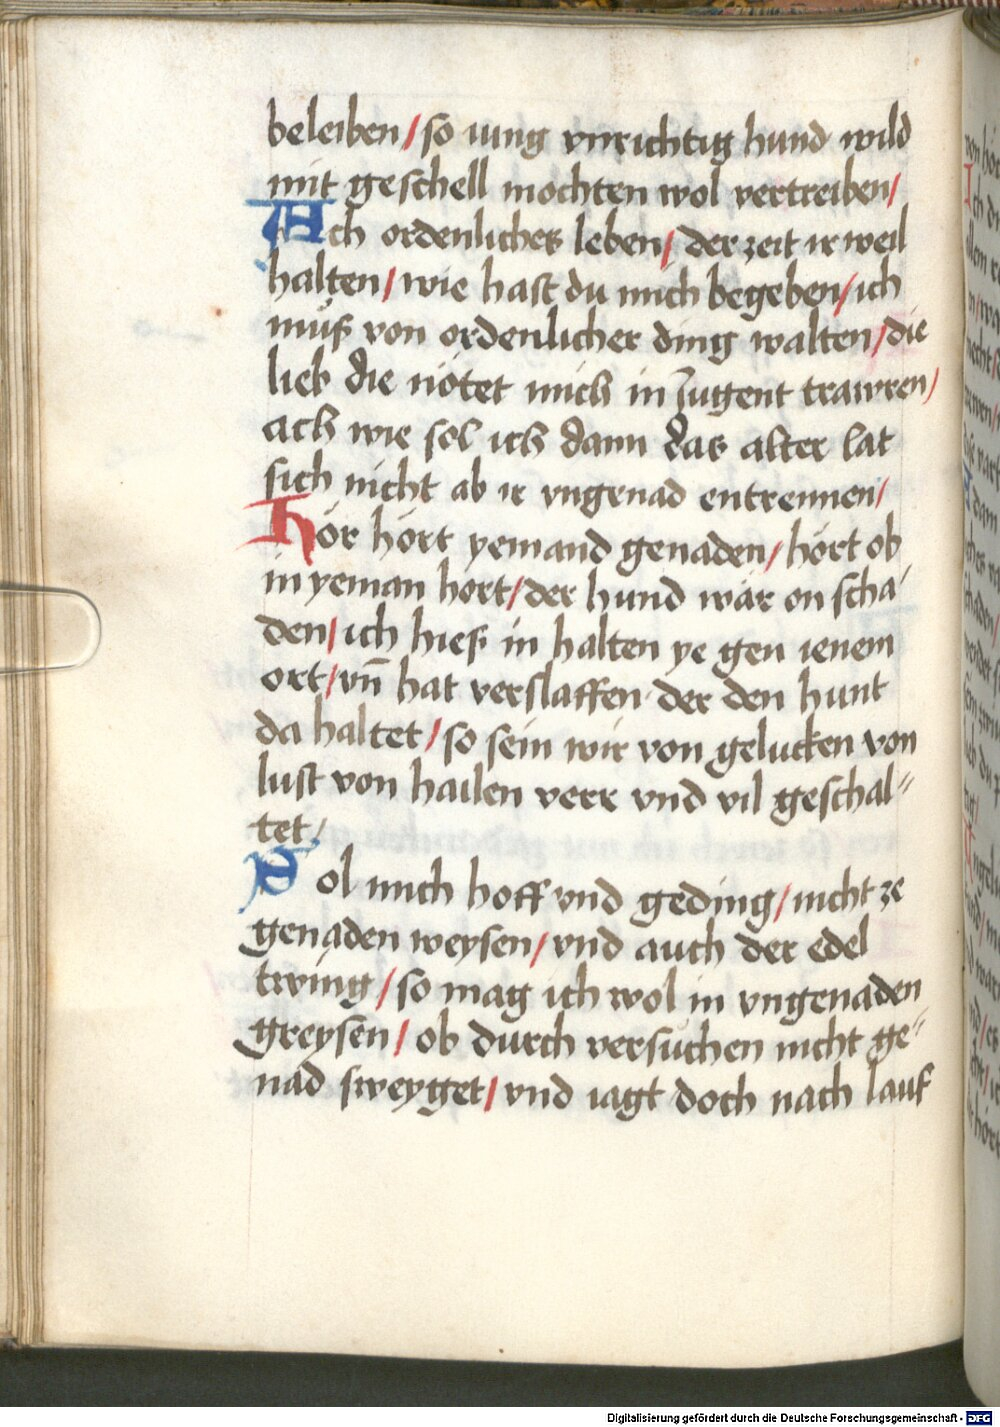 beleiben / so iung vnrichtig hund wild
mit geschell mochten wol vertreiben /
Ach ordenliches leben / der zeit ir weil
halten / wie hast du mich begeben / ich
müß von ordenlicher ding walten / die
lieb die nötet mich in Iugent trawren /
ach wie sol ich dann das alter lat
sich nicht ab ir vngenad entrennen /
Hör hört yemand genaden / hört ob
in yeman hört / der hund wär on scha
den / ich hieß in halten ye gen ienem
ort / vn̄ hat verslaffen der den hunt
da haltet / so sein wir von gelucken von
lust von hailen verr vnd vil geschal=
tet /
Sol mich hoff vnd geding / nicht ze
genaden weysen / vnd auch der edel
twing / so mag ich wol in vngenaden
greysen / ob durch versuchen nicht ge=
nad sweyget / vnd iagt doch nach lauf
Digitalisierung gefördert durch die Deutsche Forschungsgemeinschaft - DFG